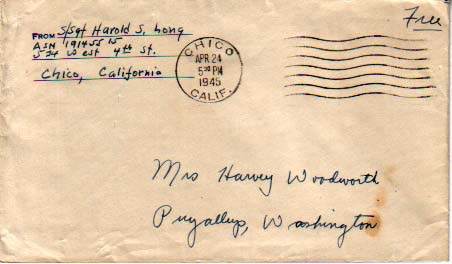 FROM S/Sgt Harold S. Long
ASN 19145515
524 West 4th St.
Chico, California
CHICO
APR 24
5 30 PM
1945
CALIF.
Free
Mrs Harvey Woodworth
Puyallup, Washington